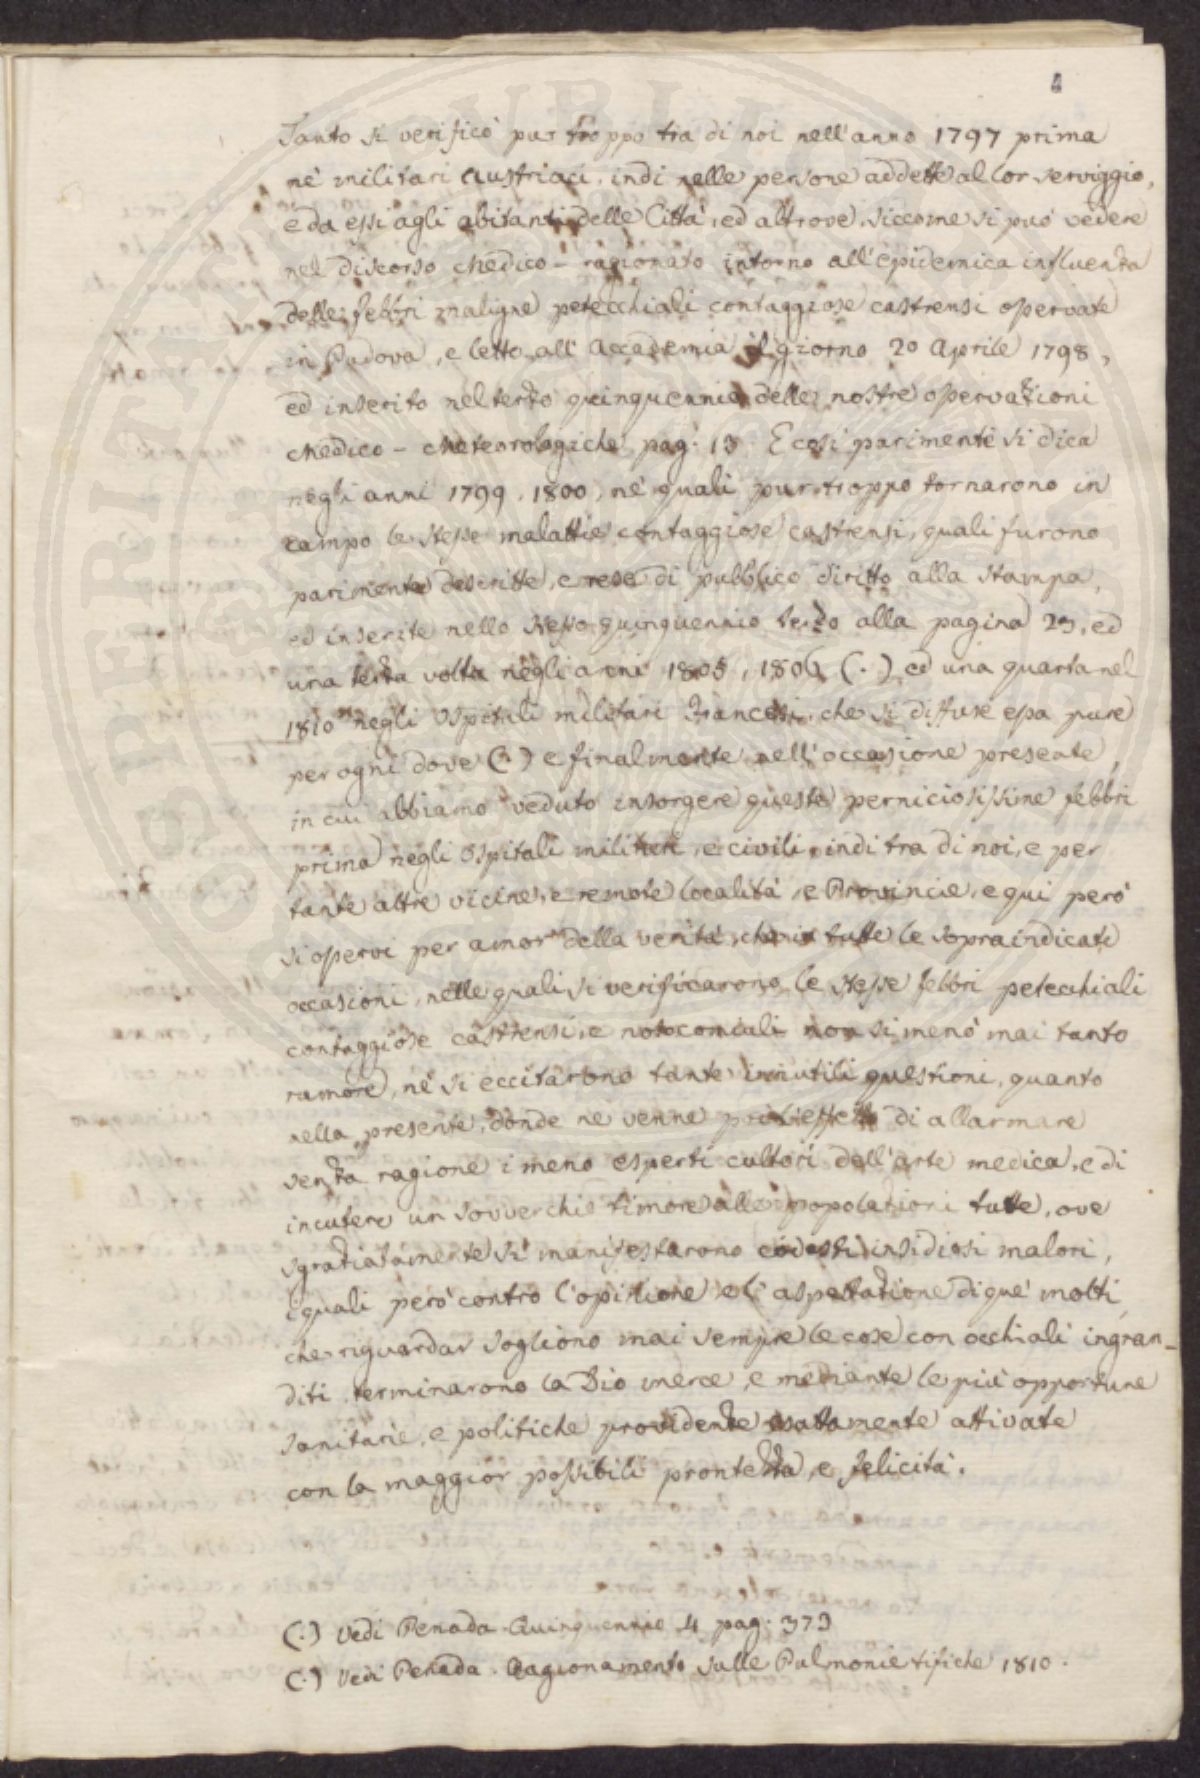 4
Tanto si verificò pur troppo tra di noi nell'anno 1797 prima
ne' militari Austriaci, indi nelle persone addette al lor serviggio,
e da essi agli abitanti delle Città, ed altrove, siccome si può vedere
nel discorso Medico - ragionato intorno all'epidemica influenza
delle febbri maligne petecchiali contaggiose castrensi osservate
in Padova, e letto all'Accademia il giorno 20 Aprile 1798,
ed inserito nel terzo quinquennio delle nostre osservazioni
Medico - Meteorologiche pag. 13. E così parimenti si dica
negli anni 1799, 1800, ne' quali pur troppo tornarono in
campo le stesse malattie contaggiose castrensi, quali furono
parimente descritte, e rese di pubblico diritto alla stampa,
ed inserite nello stesso quinquennio terzo alla pagina 29, ed
una terza volta negli anni 1805, 1806 (.) ed una quarta nel
1810 negli Ospitali militari Francesi, che si diffuse essa pure
per ogni dove (.) e finalmente nell'occasione presente,
in cui abbiamo veduto insorgere queste perniciosissime febbri
prima negli Ospitali militari, e civili, indi tra di noi, e per
tante altre vicine, e remote località, e Provincie, e qui però
si osservi per amor della verità, che in tutte le sopraindicate
occasioni, nelle quali si verificarono le stesse febbri petecchiali
contaggiose castrensi, e nosocomiali non si menò mai tanto
rumore, nè si eccitarono tante innutili questioni, quanto
nella presente, donde ne venne poi l'effetto di allarmare
senza ragione i meno esperti cultori dell'arte medica, e di
incutere un sovverchio timore alle popolazioni tutte, ove
sgraziatamente si manifestarono codesti insidiosi malori,
i quali però contro l'opinione e l'aspettazione di que' molti,
che riguardar sogliono mai sempre le cose con occhiali ingran-
diti, terminarono la Dio mercè, e mediante le più opportune
sanitarie, e politiche providenze esattamente attivate
con la maggior possibili prontezza, e felicità.
(.) Vedi Penada Quinquennio 4 pag. 373
(.) Vedi Penada. Ragionamento sulle Pulmonie tifiche 1810.